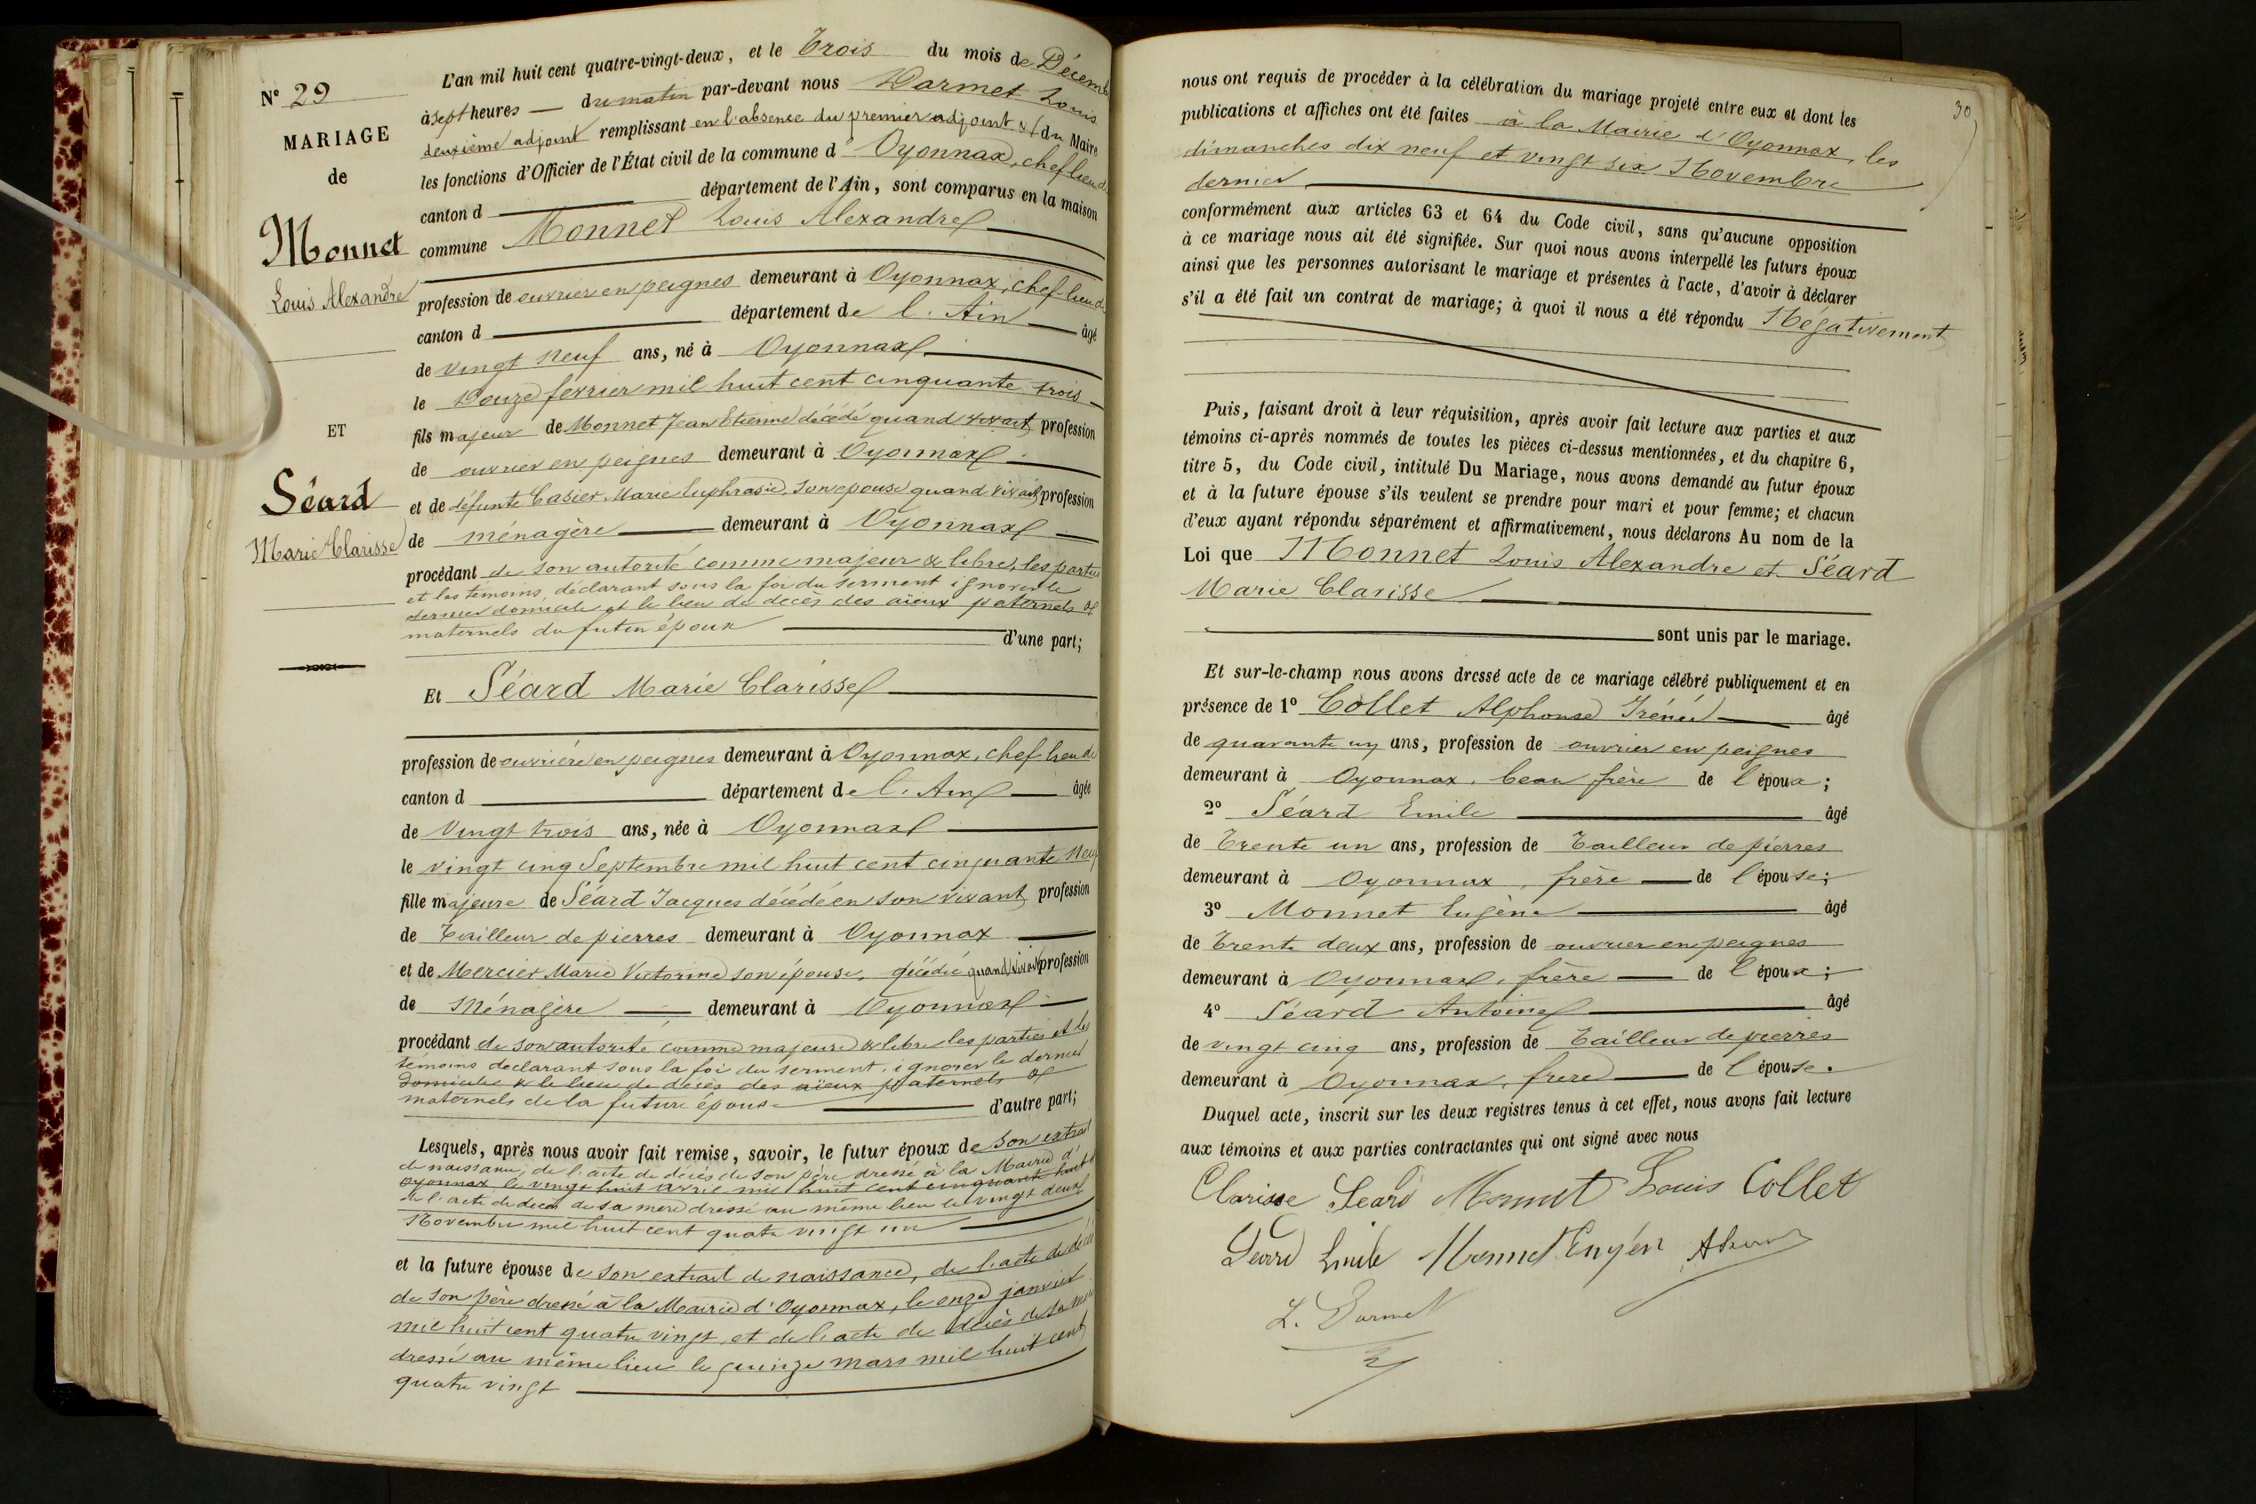 N° 29
MARIAGE
de
Monnet
Louis Alexandre
ET
Séard
Marie Clarisse
L'an mil huit cent quatre-vingt-deux, et le Trois du mois de Décemb
à sept heures du matin par-devant nous Darmet Louis
deuxième adjoint remplissant en l'absence du premier adjoint & du Maire
les fonctions d'Officier de l'État civil de la commune d'Oyonnax, chef lieu de
canton d département de l'Ain, sont comparus en la maison
commune Monnet Louis Alexandre
profession de ouvrier en peignes demeurant à Oyonnax, chef-lieu de
canton d département de l'Ain âgé
de vingt neuf ans, né à Oyonnax
le Douze février mil huit cent cinquante trois
fils majeur de Monnet Jean Etienne décédé quand vivait profession
de ouvrier en peignes demeurant à Oyonnax
et de défunte Marie Euphrasie son épouse quand vivait profession
de ménagère demeurant à Oyonnax
procédant de son autorité comme majeur & libre, les parties
et les témoins, déclarant sous la foi du serment ignorer le
dernier domicile et le lieu de décès des aïeux paternels &
maternels du futur époux d'une part;
Et Séard Marie Clarisse
profession de ouvrière en peignes demeurant à Oyonnax, chef lieu de
canton d département de l'Ain âgée
de Vingt trois ans, née à Oyonnax
le vingt cinq Septembre mil huit cent cinquante neuf
fille majeure de Séard Jacques décédé en son vivant profession
de Tailleur de pierres demeurant à Oyonnax
et de Mercier Marie Victorine son épouse, décédée quand vivait profession
de Ménagère demeurant à Oyonnax
procédant de son autorité comme majeure & libre les parties et les
témoins déclarant sous la foi du serment, ignorer le dernier
domicile & le lieu de décès des aïeux paternels &
maternels de la future épouse d'autre part;
Lesquels, après nous avoir fait remise, savoir, le futur époux de son extrait
de naissance, de l'acte de décès de son père dressé à la Mairie d'
Oyonnax le vingt huit avril mil huit cent cinquante huit &
de l'acte de décès de sa mère dressé au même lieu le vingt deux
Novembre mil huit cent quatre vingt un
et la future épouse de son extrait de naissance, de l'acte de décès
de son père dressé à la Mairie d'Oyonnax, le onze janvier
mil huit cent quatre vingt, et de l'acte de décès de sa mère
dressé au même lieu le quinze mars mil huit cent
quatre vingt
30
nous ont requis de procéder à la célébration du mariage projeté entre eux et dont les
publications et affiches ont été faites à la Mairie d'Oyonnax, les
dimanches dix neuf et vingt six Novembre
dernier
conformément aux articles 63 et 64 du Code civil, sans qu'aucune opposition
à ce mariage nous ait été signifiée. Sur quoi nous avons interpellé les futurs époux
ainsi que les personnes autorisant le mariage et présentes à l'acte, d'avoir à déclarer
s'il a été fait un contrat de mariage; à quoi il nous a été répondu Négativement
Puis, faisant droit à leur réquisition, après avoir fait lecture aux parties et aux
témoins ci-après nommés de toutes les pièces ci-dessus mentionnées, et du chapitre 6,
titre 5, du Code civil, intitulé Du Mariage, nous avons demandé au futur époux
et à la future épouse s'ils veulent se prendre pour mari et pour femme; et chacun
d'eux ayant répondu séparément et affirmativement, nous déclarons Au nom de la
Loi que Monnet Louis Alexandre et Séard
Marie Clarisse
sont unis par le mariage.
Et sur-le-champ nous avons dressé acte de ce mariage célébré publiquement et en
présence de 1° Collet Alphonse Irénée âgé
de quarante un ans, profession de ouvrier en peignes
demeurant à Oyonnax, beau frère de l'époux;
2° Séard Emile âgé
de Trente un ans, profession de Tailleur de pierres
demeurant à Oyonnax, frère de l'épouse;
3° Monnet Eugène âgé
de Trente deux ans, profession de ouvrier en peignes
demeurant à Oyonnax, frère de l'époux;
4° Séard Antoine âgé
de vingt cinq ans, profession de Tailleur de pierres
demeurant à Oyonnax, frère de l'épouse.
Duquel acte, inscrit sur les deux registres tenus à cet effet, nous avons fait lecture
aux témoins et aux parties contractantes qui ont signé avec nous
Clarisse Seard Monnet Louis Collet
Seard Emile Monnet Eugén
L. Darmet